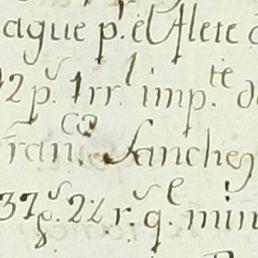 ague pʳ. el flete
2 pˢ. 1 rrˡ. impᵗᵉ. d
franᶜᵒ. Sanchez
37 pˢ. 2½ rˢ. qᵉ. min